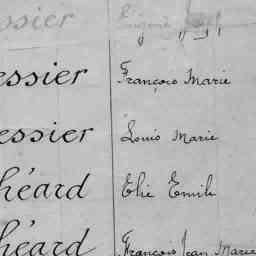 ossier
essier François Marie
essier Louis Marie
héard Elie Emile
héard François Jean Marie